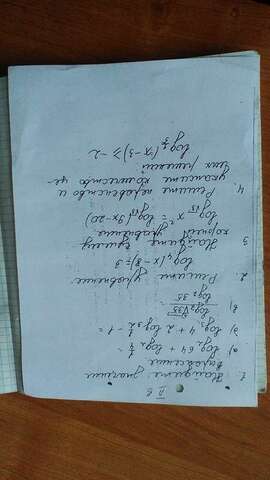 II в
1. Найдите значение
выражения
а) log₂ 64 + log₂ 1/4
б) log₂ 4 · 2 log 32 - 1 =
log₂ 35
2. Решите уравнение
log₄ (x - 8) = 3
3. Найдите сумму
корней уравнения
log√15 x² = log√15 (9x - 20)
4. Решите неравенство и
укажите количество це-
лых решений
(x - 3) ≥ -2